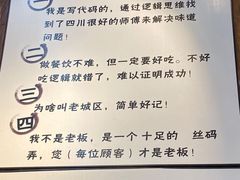 一
我是写代码的，通过逻辑思维找
到了四川很好的师傅来解决味道
问题！
二
做餐饮不难，但一定要好吃。不好
吃逻辑就错了，难以证明成功！
三
为啥叫老城区，简单好记！
四
我不是老板，是一个十足的 丝码
弄，您（每位顾客）才是老板！